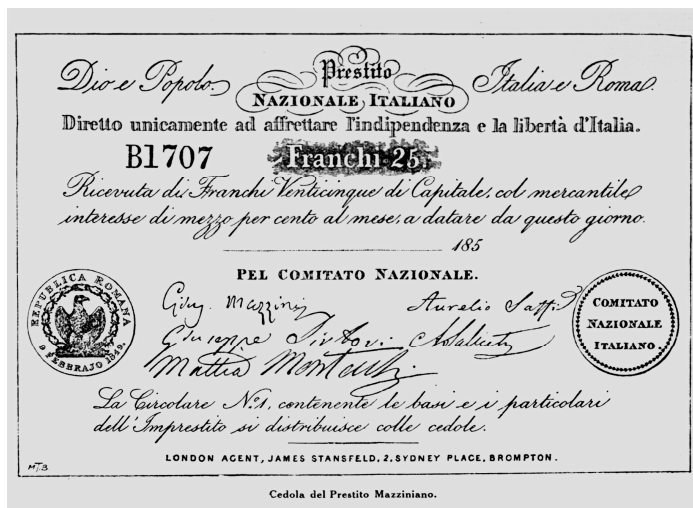 Dio e Popolo. Prestito Italia e Roma.
NAZIONALE ITALIANO
Diretto unicamente ad affrettare l'indipendenza e la libertà d'Italia.
B1707 Franchi 25.
Ricevuta di Franchi Venticinque di Capitale, col mercantile
interesse di mezzo per cento al mese, a datare da questo giorno.
185
PEL COMITATO NAZIONALE.
REPUBLICA ROMANA
9 FEBBRAJO 1849.
Gius. Mazzini Aurelio Saffi
Giuseppe Sirtori ASaliceti
Mattia Montecchi
COMITATO
NAZIONALE
ITALIANO.
La Circolare No. 1, contenente le basi e i particolari
dell'Imprestito si distribuisce colle cedole.
LONDON AGENT, JAMES STANSFELD, 2, SYDNEY PLACE, BROMPTON.
MT.3
Cedola del Prestito Mazziniano.